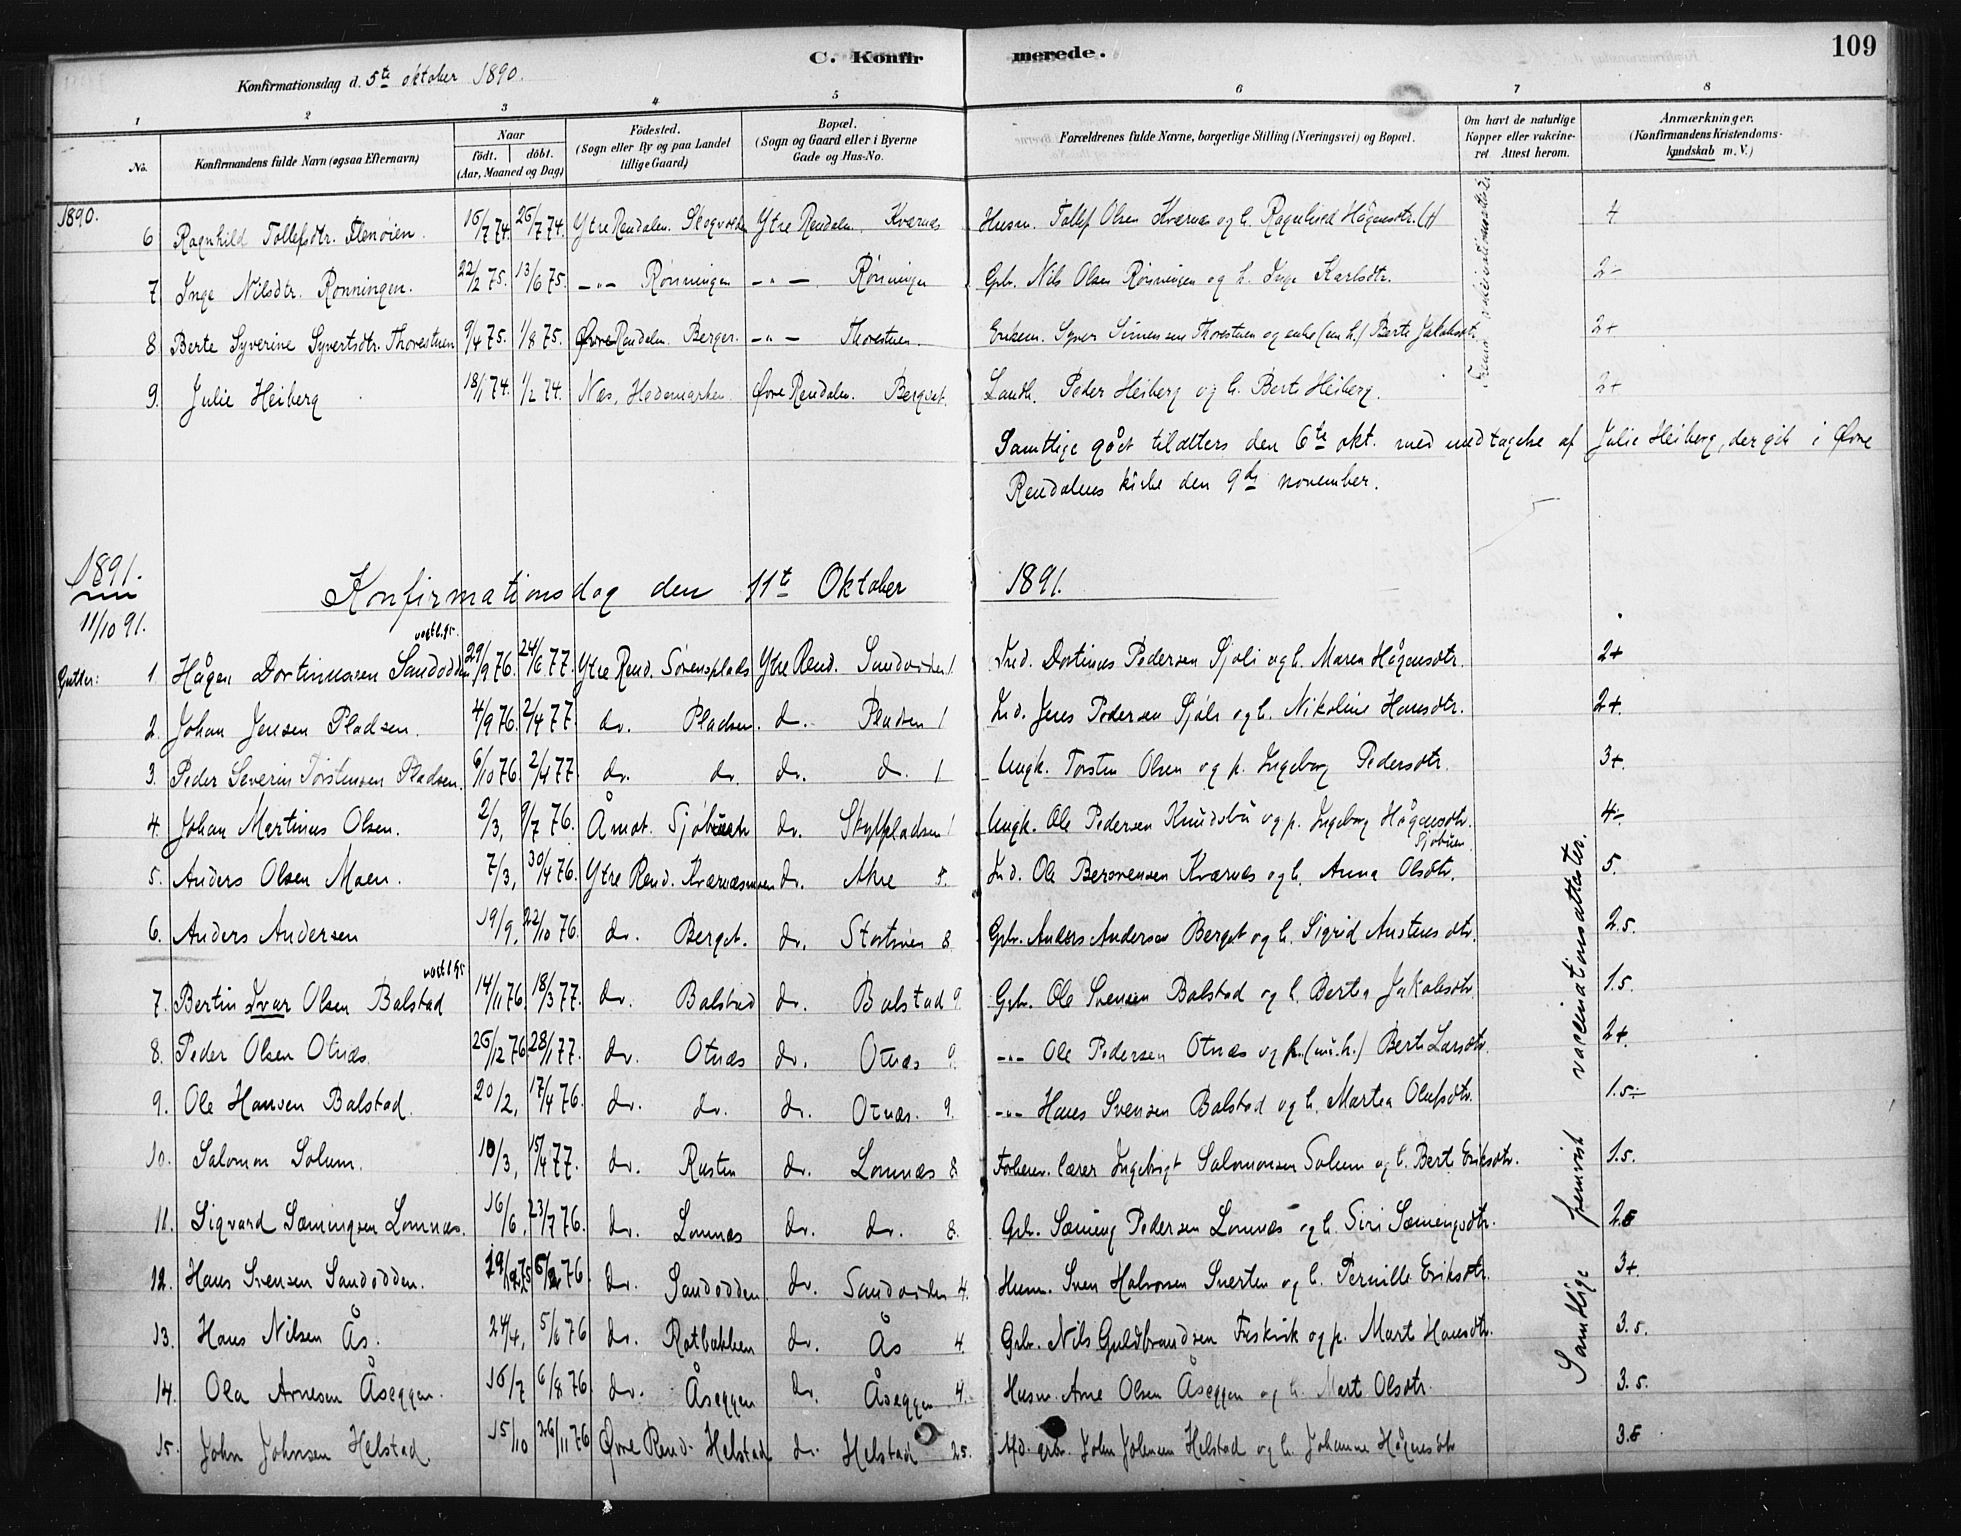 C. Konfirmerede. 109
Konfirmationsdag d. 5te oktober 1890.
1 2 3 4 5 6 7 8
No. Konfirmandens fulde Navn (ogsaa Efternavn) Naar født. døbt. (Aar, Maaned og Dag) Fødested. (Sogn eller By og paa Landet tillige Gaard) Bopæl. (Sogn og Gaard eller i Byerne Gade og Hus-No. Forældrenes fulde Navne, borgerlige Stilling (Næringsvei) og Bopæl. Om havt de naturlige Kopper eller vakcineret Attest herom. Anmærkninger. (Konfirmandens Kristendomskundskab m. V.)
1890.
6 Ragnhild Tollefsdtr. Stenøien. 15/7 74. 26/7 74. Ytre Rendalen. Ytre Rendalen. Kværnæs Husm. Tollef Olsen Kværnæs og h. Ragnhild Høgensdtr. 4
7 Inge Nilsdtr. Rønningen. 22/2 75. 13/6 75. -"- Rønningen -"- Rønningen Gbr. Nils Olsen Rønningen og h. Inge Karlsdtr. 2-
8 Berte Syverine Syvertsdtr. Thorestuen 9/4 75. 1/8 75. Øvre Rendalen. Berger. -"- Thorestuen. Enkem. Syver Simensen Thorestuen og 2+
9. Julie Heiberg 18/1 74. 1/2 74. Næs, Hedemarken Øvre Rendalen. Berget. Landh. Peder Heiberg og h. Bert Heiberg. 2+
Samtlige gået tilalters den 6te okt. med undtagelse af Julie Heiberg, der gik i Øvre
Rendalens kirke den 9de november.
1891.
Konfirmationsdag den 11te Oktober 1891.
11/10 91.
Gutter: 1. Hågen Dortinusen Sandodden 29/9 76. 24/6 77. Ytre Rend. Sørensplads Ytre Rend. Sandodden 1 Ind. Dortinus Pedersen Sjøli og h. Maren Høgensdtr. 2+
2. Johan Jensen Pladsen. 4/9 76. 2/4 77. do. Pladsen. do. Pladsen 1 Ind. Jens Pedersen Sjøli og h. Nikoline Hansdtr. 2+.
3. Peder Severin Torstensen Pladsen. 6/10 76. 2/4 77. do. do. do. do. 1 Ungk. Torsten Olsen og p. Ingeborg Pedersdtr. 3+.
4. Johan Martinus Olsen. 2/3, 9/7 76. Åmot. do. Ungk. Ole Pedersen Knudsbu og p. Ingeborg Høgensdtr. Sjøbuen 4-.
5. Anders Olsen Moen. 7/3, 30/4 76. Ytre Rend. Kværnæsmoen do. Akre 5. Ind. Ole Bersvensen Kværnæs og h. Anna Olsdtr. 5.
6. Anders Andersen 19/9, 22/10 76. do. Berget. do. 8 Gbr. Anders Andersen Berget og h. Sigrid Austensdtr. 2.5.
7. Bertin Ivar Olsen Balstad 14/11 76. 18/3 77. do. Balstad do. Balstad 9. Gbr. Ole Svensen Balstad og h. Berta Jakobsdtr. 1.5.
8. Peder Olsen Otnæs. 26/12 76. 28/1 77. do. Otnæs do. Otnæs 9. -"- Ole Pedersen Otnæs og h. (nu. h.) Berte Larsdtr. 2+.
9. Ole Hansen Balstad. 20/2, 17/4 76. do. do. do. Otnæs. 9. -"- Hans Svensen Balstad og h. Martea Olufsdtr. 1.5-
10. Salomon Solum. 10/3, 15/4 77. do. Rusten do. Lomnæs 8. lærer Ingebrigt Salomonsen Solum og h. Berte Eriksdtr. 1.5.
11. Sigvard Sæmingsen Lomnæs. 16/6, 23/7 76. do. Lomnæs do. do. 8. Gbr. Sæming Pedersen Lomnæs og h. Siri Sæmingsdtr. 2.5
12. Hans Svensen Sandodden. 29/12 75 76. do. Sandodden. do. Sandodden 4. Husm. Sven Halvorsen og h. Pernille Eriksdtr. 3+.
13. Hans Nilsen Ås. 24/4, 5/6 76 do. Rotbakken do. Ås 4. Gbr. Nils Guldbrandsen og p. Mart Hansdtr. 3.5.
14. Ola Arnesen Åseggen. 16/7 6/8 76 do. Åseggen do. Åseggen 4. Husm. Arne Olsen Åseggen og h. Mart Olsdtr. 3.5.
15. John Johnsen Helstad. 15/10 26/11 76 Øvre Rend. Helstad do. Helstad 25. gbr. John Johnsen Helstad og h. Johanne Høgensdtr 3.5
Samtlige fremvist vaccinationsattester.